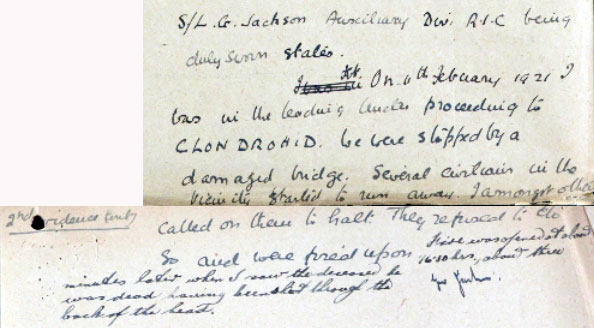 S/L. G. Jackson Auxiliary Div. R.I.C being
duly sworn states.
On 11th February 1921 I
was in the leading tender proceeding to
CLONDROHID. We were stopped by a
damaged bridge. Several civilians in the
vicinity started to run away. I amongst others
2nd evidence
called on them to halt. They refused to do
so and were fired upon
Fire was opened at about
16.30 hrs, about three
minutes later when I saw the deceased he
was dead having been shot through the
back of the head.